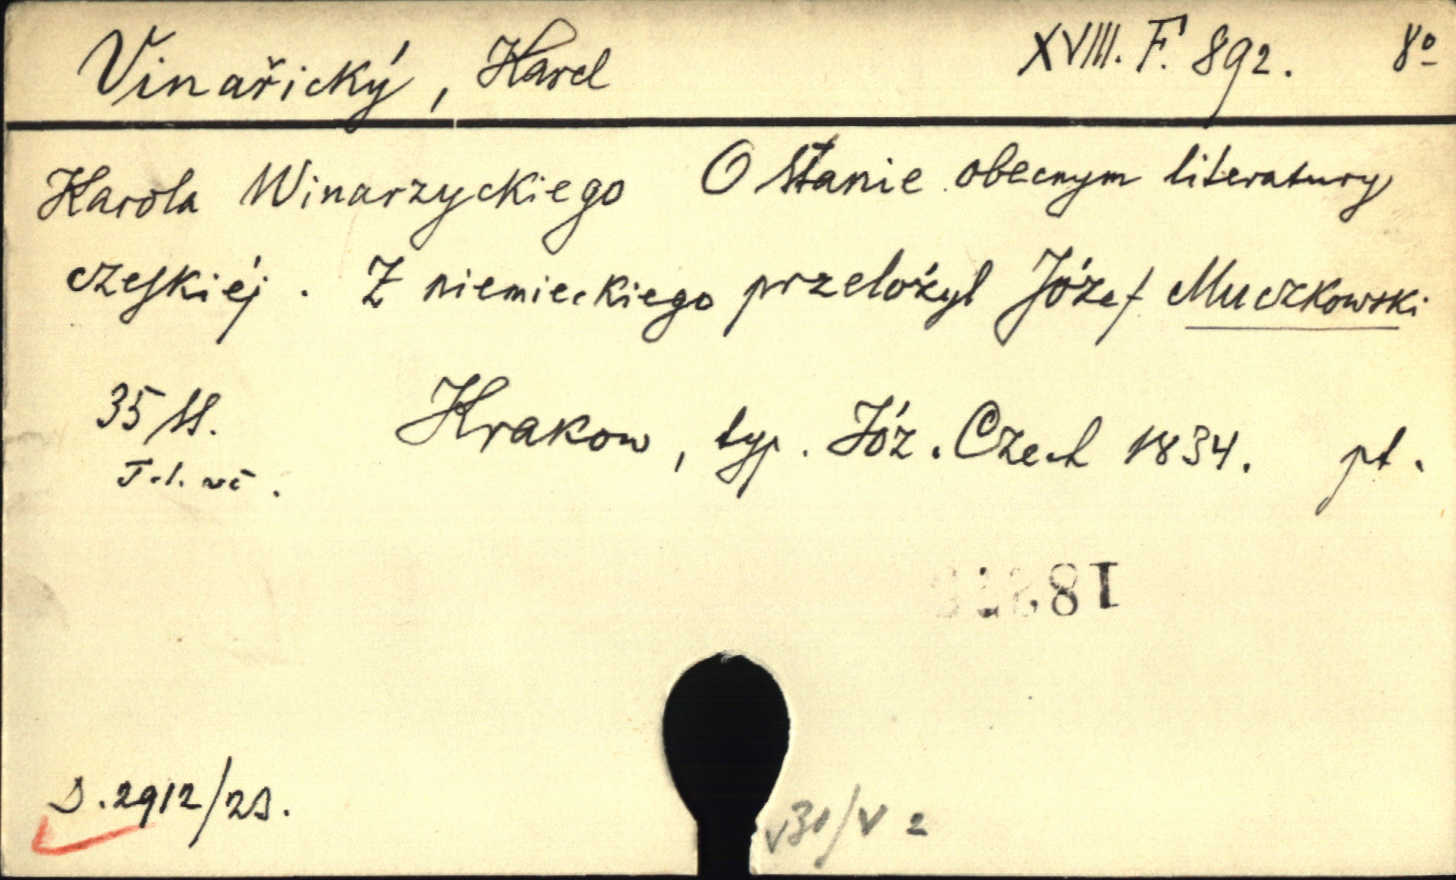 Vinařický, Karel XVIII. F. 892. 8º
Karola Winarzyckiego O stanie obecnym literatury
czeskiéj. Z niemieckiego przelożyl Józef Muczkowski
35 ss. Krakow, typ. Józ. Czech 1834. pt.
D. 2912/